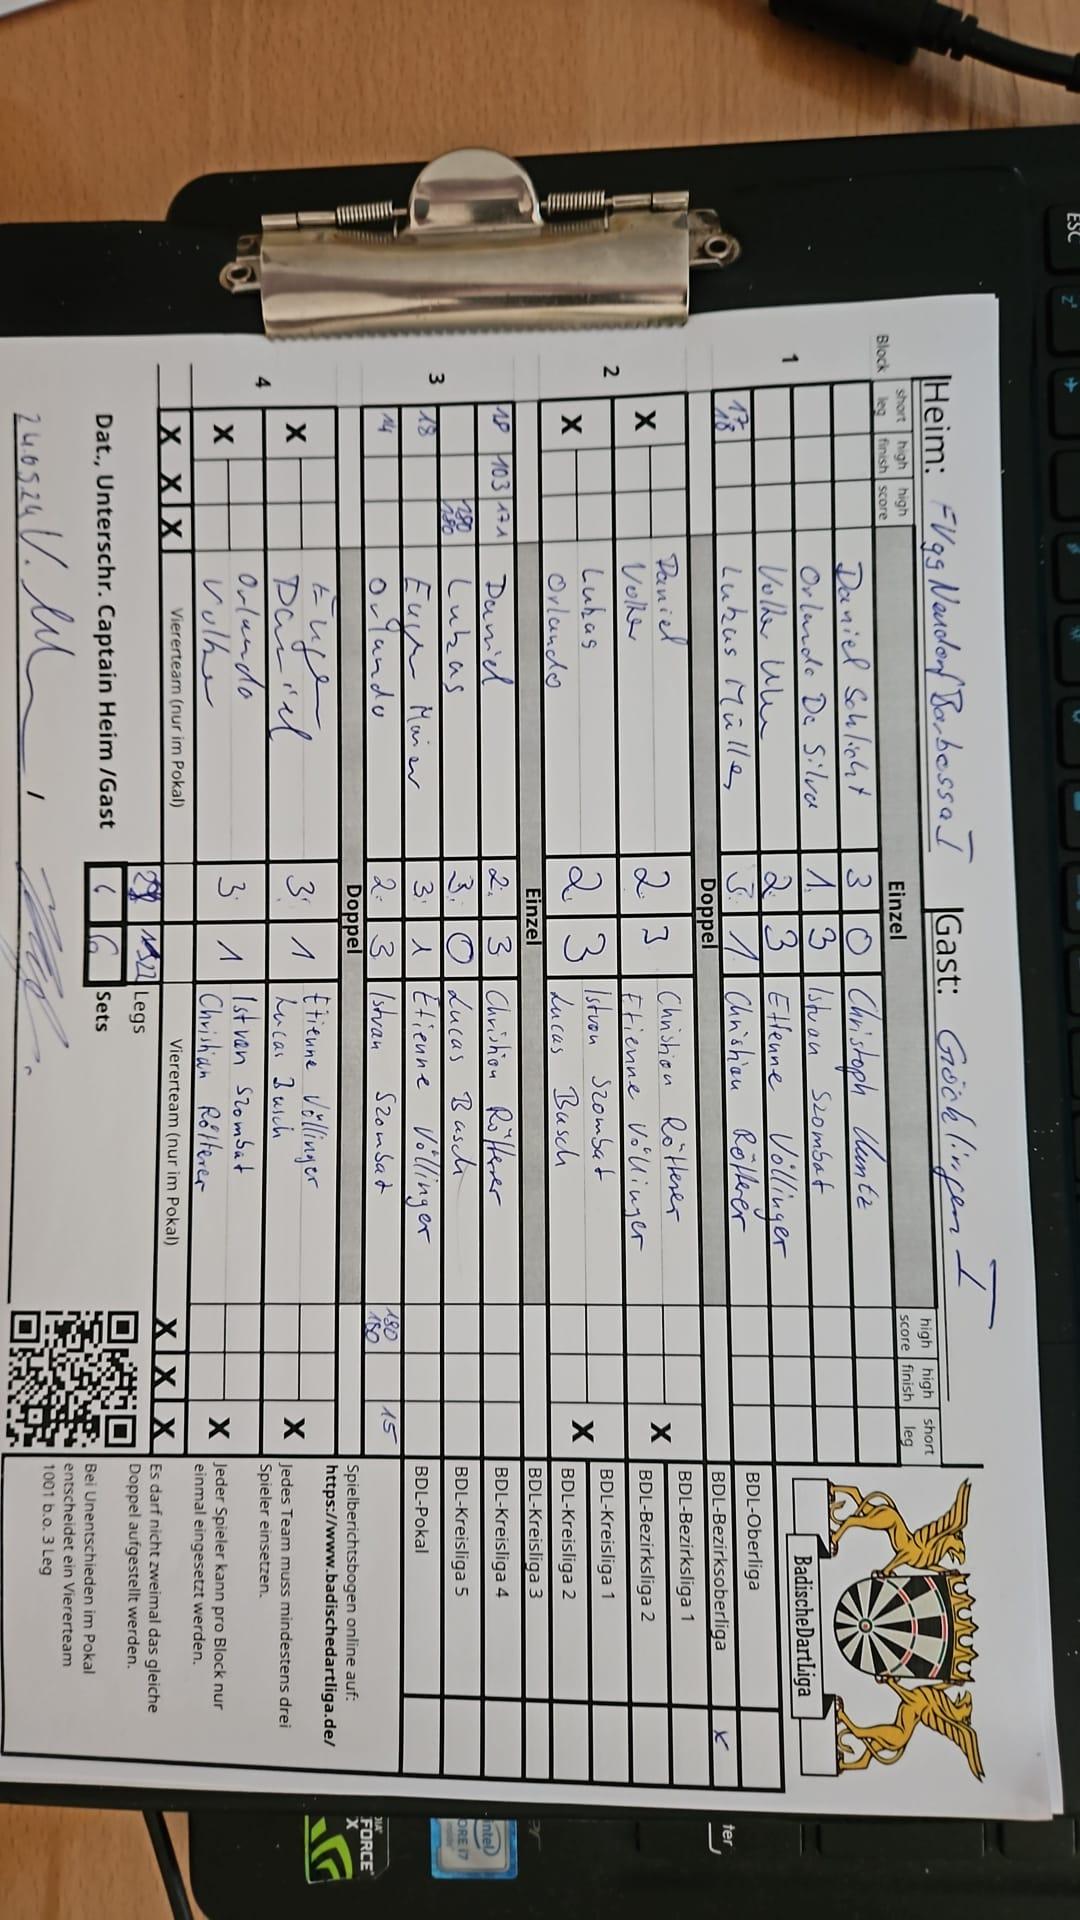 Heim: FVgg Neudorf Barbossa I Gast: Göcklingen I
Block short leg high finish high score Einzel high score high finish short leg
1
Daniel Schlicht 3 0 Christoph Kuntz
Orlando Da Silva 1 3 Istvan Szombat
Volker Uhr 2 3 Etienne Völlinger
17 18 Lukas Müller 3 1 Christian Rötterer
Doppel
2
X Daniel 2 3 Christian Rötterer X
Volker Etienne Völlinger
X Lukas 2 3 Istvan Szombat X
Orlando Lucas Busch
Einzel
3
18 103 171 Daniel 2 3 Christian Rötterer
180 180 Lukas 3 0 Lucas Busch
18 Eugen Maier 3 1 Etienne Völlinger
14 Orlando 2 3 Istvan Szombat 180 180 15
Doppel
4
X Eugen 3 1 Etienne Völlinger X
Daniel Lucas Busch
X Orlando 3 1 Istvan Szombat X
Volker Christian Rötterer
X X X Viererteam (nur im Pokal) Viererteam (nur im Pokal) X X X
Legs
Dat., Unterschr. Captain Heim /Gast 6 6 Sets
24.05.24
BadischeDartLiga
BDL-Oberliga
BDL-Bezirksoberliga x
BDL-Bezirksliga 1
BDL-Bezirksliga 2
BDL-Kreisliga 1
BDL-Kreisliga 2
BDL-Kreisliga 3
BDL-Kreisliga 4
BDL-Kreisliga 5
BDL-Pokal
Spielberichtsbogen online auf:
https://www.badischedartliga.de/
Jedes Team muss mindestens drei
Spieler einsetzen.
Jeder Spieler kann pro Block nur
einmal eingesetzt werden.
Es darf nicht zweimal das gleiche
Doppel aufgestellt werden.
Bei Unentschieden im Pokal
entscheidet ein Viererteam
1001 b.o. 3 Leg
ESC
intel